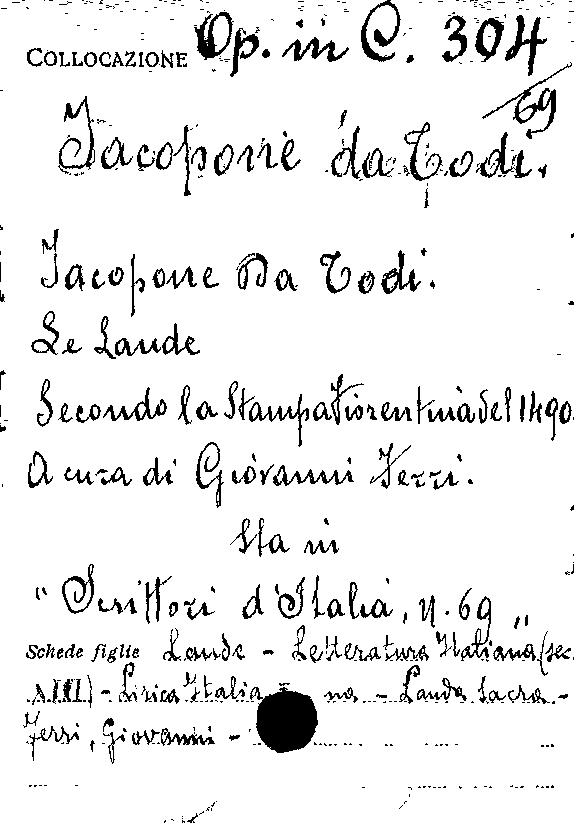 COLLOCAZIONE Op. in C. 304
69
Jacopone da Todi.
Jacopone Da Todi.
Le Laude
Secondo la Stampa Fiorentina del 1490
A cura di Giovanni Ferri.
Sta in
"Scrittori d'Italia, n. 69"
Schede figlie Laude - Letteratura Italiana (sec.
XIII) - Lirica Italia na - Lauda Sacra -
Ferri, Giovanni -